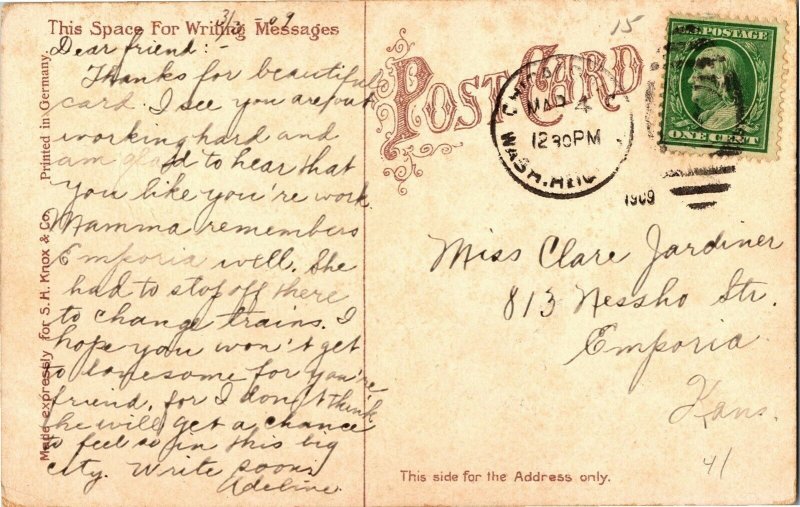 This Space For Writing Messages
3/3 - 09
Dear friend:-
Thanks for beautiful
card. I see you are out
working hard and
am glad to hear that
you like you're work.
Mamma remembers
Emporia well. She
had to stop off there
to change trains. I
hope you won't get
to lonesome for you're
friend, for I don't think
he will get a chance
to feel so in this big
city. Write soon.
Adeline.
Made expressly for S. H. Knox & Co. Printed in Germany
POST CARD
15
CHICAGO
MAR 4
12 30 PM
WASH. HEIG
1909
U.S. POSTAGE
ONE CENT
Miss Clare Jardiner
813 Nessho Str.
Emporia
Kans.
41
This side for the Address only.